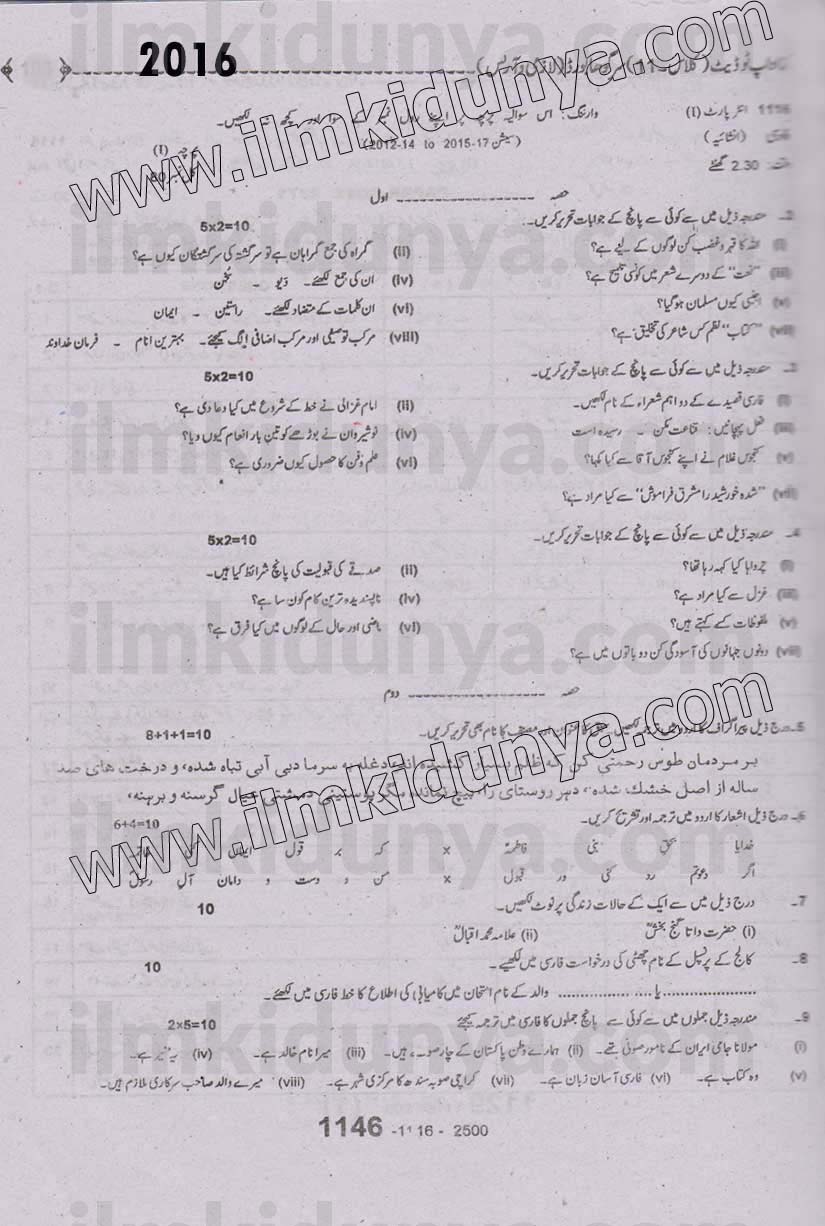 2016
www.ilmkidunya.com
1116 انٹر پارٹ (I) وارننگ: اس سوالیہ پرچہ پر اپنے رول نمبر کے سوا اور کچھ نہ لکھیں۔
(انشائیہ) (سیشن 2012-14 to 2015-17) پرچہ (I)
2.30 گھنٹے
حصہ ---------------- اول
2۔ مندرجہ ذیل میں سے کوئی سے پانچ کے جوابات تحریر کریں۔ 5x2=10
(i) اللہ کا قہر و غضب کن لوگوں کے لیے ہے؟ (ii) گمراہ کی جمع گمراہان ہے تو سرگشتہ کی سرگشتگان کیوں ہے؟
(iii) "نعت" کے دوسرے شعر میں کونسی تلمیح ہے؟ (iv) ان کی جمع لکھئے۔ دیو ۔ سُخن
(v) اجنبی کیوں مسلمان ہو گیا؟ (vi) ان کلمات کے متضاد لکھئے۔ راستین ۔ ایمان
(vii) "کتاب" نظم کس شاعر کی تخلیق ہے؟ (viii) مرکب توصیفی اور مرکب اضافی الگ کیجئے۔ بہترین انام ۔ فرمان خداوند
3۔ مندرجہ ذیل میں سے کوئی سے پانچ کے جوابات تحریر کریں۔ 5x2=10
(i) فارسی قصیدے کے دو اہم شعراء کے نام لکھیں۔ (ii) امام غزالی نے خط کے شروع میں کیا دعا دی ہے؟
(iii) فعل پہچانیں: قناعت مکن ۔ رسیدہ است (iv) نوشیروان نے بوڑھے کو تین بار انعام کیوں دیا؟
(v) کنجوس غلام نے اپنے کنجوس آقا سے کیا کہا؟ (vi) علم و فن کا حصول کیوں ضروری ہے؟
(vii) "شدہ خورشید را مشرق فراموش" سے کیا مراد ہے؟
4۔ مندرجہ ذیل میں سے کوئی سے پانچ کے جوابات تحریر کریں۔ 5x2=10
(i) چرواہا کیا کہہ رہا تھا؟ (ii) صدقے کی قبولیت کی پانچ شرائط کیا ہیں۔
(iii) غزل سے کیا مراد ہے؟ (iv) ناپسندیدہ ترین کام کون سا ہے؟
(v) ملفوظات کسے کہتے ہیں؟ (vi) ماضی اور حال کے لوگوں میں کیا فرق ہے؟
(viii) دونوں جہانوں کی آسودگی کن دو باتوں میں ہے؟
حصہ ---------------- دوم
5۔ درج ذیل پیراگراف کا اردو میں ترجمہ لکھیں۔ سبق کا عنوان اور مصنف کا نام بھی تحریر کریں۔ 8+1+1=10
بر مردمان طوس رحمتی کن که ظلم بسیار کشیده اند و غله به سرما و بی آبی تباه شده، و درخت های صد
ساله از اصل خشك شده، و هر روستای را هیچ نمانده مگر پوستینی و مشتی عیال گرسنه و برهنه،
6۔ درج ذیل اشعار کا اردو میں ترجمہ اور تشریح کریں۔ 6+4=10
خدایا بحق بنی فاطمہؑ x کہ بر قول ایمان
اگر دعوتم رد کنی ور قبول x من و دست و دامان آلِ رسولؐ
7۔ درج ذیل میں سے ایک کے حالات زندگی پر نوٹ لکھیں۔ 10
(i) حضرت داتا گنج بخشؒ (ii) علامہ محمد اقبالؒ
8۔ کالج کے پرنسپل کے نام چھٹی کی درخواست فارسی میں لکھیے۔ 10
....................یا................ والد کے نام امتحان میں کامیابی کی اطلاع کا خط فارسی میں لکھئے۔
9۔ مندرجہ ذیل جملوں میں سے کوئی سے پانچ جملوں کا فارسی میں ترجمہ کیجئے 2x5=10
(i) مولانا جامی ایران کے نامور صوفی تھے۔ (ii) ہمارے وطن پاکستان کے چار صوبے ہیں۔ (iii) میرا نام خالد ہے۔ (iv) یہ میز ہے۔
(v) وہ کتاب ہے۔ (vi) فارسی آسان زبان ہے۔ (vii) کراچی صوبہ سندھ کا مرکزی شہر ہے۔ (viii) میرے والد صاحب سرکاری ملازم ہیں۔
1146 -1116 - 2500